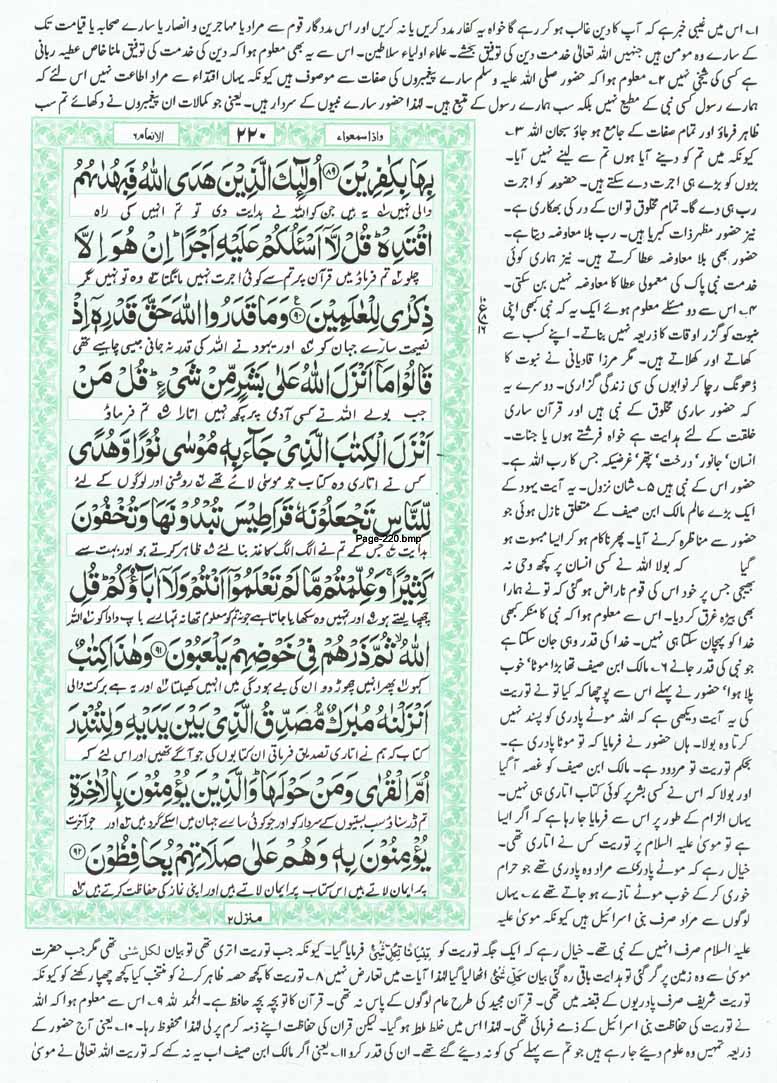 ۱۔ اس میں غیبی خبر ہے کہ آپ کا دین غالب ہو کر رہے گا خواہ یہ کفار مدد کریں یا نہ کریں اور اس مددگار قوم سے مراد یا مہاجرین و انصار یا سارے صحابہ یا قیامت تک
کے سارے وہ مومن ہیں جنہیں اللہ تعالیٰ خدمت دین کی توفیق بخشے۔ علماء اولیاء سلاطین۔ اس سے یہ بھی معلوم ہوا کہ دین کی خدمت کی توفیق ملنا خاص عطیہ ربانی
ہے کسی کی شیخی نہیں ۲۔ معلوم ہوا کہ حضور صلی اللہ علیہ وسلم سارے پیغمبروں کی صفات سے موصوف ہیں کیونکہ یہاں اقتداء سے مراد اطاعت نہیں اس لئے کہ
ہمارے رسول کسی نبی کے مطیع نہیں بلکہ سب ہمارے رسول کے متبع ہیں۔ لہٰذا حضور سارے نبیوں کے سردار ہیں۔ یعنی جو کمالات ان پیغمبروں نے دکھائے تم سب
ظاہر فرماؤ اور تمام صفات کے جامع ہو جاؤ سبحان اللہ ۳۔
کیونکہ میں تم کو دینے آیا ہوں تم سے لینے نہیں آیا۔
بڑوں کو بڑے ہی اجرت دے سکتے ہیں۔ حضور کو اجرت
رب ہی دے گا۔ تمام مخلوق تو ان کے در کی بھکاری ہے۔
نیز حضور مظہر ذات کبریا ہیں۔ رب بلا معاوضہ دیتا ہے۔
حضور بھی بلا معاوضہ عطا کرتے ہیں۔ نیز ہماری کوئی
خدمت نبی پاک کی معمولی عطا کا معاوضہ نہیں بن سکتی۔
۴۔ اس سے دو مسئلے معلوم ہوئے ایک یہ کہ نبی کبھی اپنی
نبوت کو گزر اوقات کا ذریعہ نہیں بناتے۔ اپنے کسب سے
کھاتے اور کھلاتے ہیں۔ مگر مرزا قادیانی نے نبوت کا
ڈھونگ رچا کر نوابوں کی سی زندگی گزاری۔ دوسرے یہ
کہ حضور ساری مخلوق کے نبی ہیں اور قرآن ساری
خلقت کے لئے ہدایت ہے خواہ فرشتے ہوں یا جنات۔
انسان' جانور' درخت' پتھر' غرضیکہ جس کا رب اللہ ہے۔
حضور اس کے نبی ہیں ۵۔ شان نزول۔ یہ آیت یہود کے
ایک بڑے عالم مالک ابن صیف کے متعلق نازل ہوئی جو
حضور سے مناظرہ کرنے آیا۔ پھر ناکام ہو کر ایسا مبہوت ہو
گیا کہ بولا اللہ نے کسی انسان پر کچھ وحی نہ
بھیجی جس پر خود اس کی قوم ناراض ہو گئی کہ تو نے ہمارا
بھی بیڑہ غرق کر دیا۔ اس سے معلوم ہوا کہ نبی کا منکر کبھی
خدا کو پہچان سکتا ہی نہیں۔ خدا کی قدر وہی جان سکتا ہے
جو نبی کی قدر جانے ۶۔ مالک ابن صیف تھا بڑا موٹا' خوب
پلا ہوا' حضور نے پہلے اس سے پوچھا کہ کیا تو نے توریت
کی یہ آیت دیکھی ہے کہ اللہ موٹے پادری کو پسند نہیں
کرتا وہ بولا۔ ہاں حضور نے فرمایا کہ تو موٹا پادری ہے۔
بحکم توریت تو مردود ہے۔ مالک ابن صیف کو غصہ آ گیا
اور بولا کہ اس نے کسی بشر پر کوئی کتاب اتاری ہی نہیں۔
یہاں الزام کے طور پر اس سے فرمایا جا رہا ہے کہ اگر ایسا
ہے تو موسیٰ علیہ السلام پر توریت کس نے اتاری تھی۔
خیال رہے کہ موٹے پادری سے مراد وہ پادری تھے جو حرام
خوری کر کے خوب موٹے تازے ہو جاتے تھے ۷۔ یہاں
لوگوں سے مراد صرف بنی اسرائیل ہیں کیونکہ موسیٰ علیہ
واذا سمعواء
۲۲۰
الانعام ۶
بِهَا بِكٰفِرِيْنَ ۸۹ اُولٰٓئِكَ الَّذِيْنَ هَدَى اللّٰهُ فَبِهُدٰىهُمُ
والی نہیں یہ ہیں جن کو اللہ نے ہدایت دی تو تم انہیں کی راہ
اقْتَدِهْ ؕ قُلْ لَّاۤ اَسْـَٔلُكُمْ عَلَيْهِ اَجْرًا ؕ اِنْ هُوَ اِلَّا
چلو تم فرماؤ میں قرآن پر تم سے کوئی اجرت نہیں مانگتا وہ تو نہیں مگر
ذِكْرٰى لِلْعٰلَمِيْنَ ۹۰ وَمَا قَدَرُوا اللّٰهَ حَقَّ قَدْرِهٖۤ اِذْ
نصیحت سارے جہان کو اور یہود نے اللہ کی قدر نہ جانی جیسی چاہیے تھی
قَالُوْا مَاۤ اَنْزَلَ اللّٰهُ عَلٰى بَشَرٍ مِّنْ شَيْءٍ ؕ قُلْ مَنْ
جب بولے اللہ نے کسی آدمی پر کچھ نہیں اتارا تم فرماؤ
اَنْزَلَ الْكِتٰبَ الَّذِيْ جَآءَ بِهٖ مُوْسٰى نُوْرًا وَّهُدًى
کس نے اتاری وہ کتاب جو موسیٰ لائے تھے روشنی اور لوگوں کے لئے
لِّلنَّاسِ تَجْعَلُوْنَهٗ قَرَاطِيْسَ تُبْدُوْنَهَا وَتُخْفُوْنَ
ہدایت جس کے تم نے الگ الگ کاغذ بنا لئے ظاہر کرتے ہو اور بہت سے
Page-220.bmp
كَثِيْرًا ۚ وَعُلِّمْتُمْ مَّا لَمْ تَعْلَمُوْۤا اَنْتُمْ وَلَاۤ اٰبَآؤُكُمْ ؕ قُلِ
چھپا لیتے ہو اور تمہیں وہ سکھایا جاتا ہے جو نہ تم کو معلوم تھا نہ تمہارے باپ دادا کو اللہ
اللّٰهُ ۙ ثُمَّ ذَرْهُمْ فِيْ خَوْضِهِمْ يَلْعَبُوْنَ ۹۱ وَهٰذَا كِتٰبٌ
کہو پھر انہیں چھوڑ دو ان کی بے ہودگی میں انہیں کھیلتا اور یہ ہے برکت والی
اَنْزَلْنٰهُ مُبٰرَكٌ مُّصَدِّقُ الَّذِيْ بَيْنَ يَدَيْهِ وَلِتُنْذِرَ
کتاب کہ ہم نے اتاری تصدیق فرماتی ان کتابوں کی جو آگے تھیں اور اس لئے کہ
اُمَّ الْقُرٰى وَمَنْ حَوْلَهَا ؕ وَالَّذِيْنَ يُؤْمِنُوْنَ بِالْاٰخِرَةِ
تم ڈر سناؤ سب بستیوں کے سردار کو اور جو کوئی سارے جہان میں اسکے گرد ہیں اور جو آخرت
يُؤْمِنُوْنَ بِهٖ وَهُمْ عَلٰى صَلَاتِهِمْ يُحَافِظُوْنَ ۹۲
پر ایمان لاتے ہیں اس کتاب پر ایمان لاتے ہیں اور اپنی نماز کی حفاظت کرتے ہیں
منزل ۲
علیہ السلام صرف انہیں کے نبی تھے۔ خیال رہے کہ ایک جگہ توریت کو فرمایا گیا۔ کیونکہ جب توریت اتری تھی تو بیان لکل شئی تھی مگر جب حضرت
موسیٰ سے وہ زمین پر گر گئی تو ہدایت باقی رہ گئی بیان اٹھا لیا گیا لہٰذا آیات میں تعارض نہیں ۸۔ توریت کا کچھ حصہ ظاہر کرنے کو منتخب کیا کچھ چھپا رکھنے کو کیونکہ
توریت شریف صرف پادریوں کے قبضہ میں تھی۔ قرآن مجید کی طرح عام لوگوں کے پاس نہ تھی۔ قرآن کا تو بچہ بچہ حافظ ہے۔ الحمد للہ ۹۔ اس سے معلوم ہوا کہ اللہ
نے توریت کی حفاظت بنی اسرائیل کے ذمے فرمائی تھی۔ لہٰذا اس میں خلط ملط ہو گیا۔ لیکن قرآن کی حفاظت اپنے ذمہ کرم پر لی لہٰذا محفوظ رہا۔ ۱۰۔ یعنی آج حضور کے
ذریعہ تمہیں وہ علوم دیئے جا رہے ہیں جو تم سے پہلے کسی کو نہ دیئے گئے تھے۔ ان کی قدر کرو ۱۱۔ یعنی اگر مالک ابن صیف اب یہ نہ کہے کہ توریت اللہ تعالیٰ نے موسیٰ